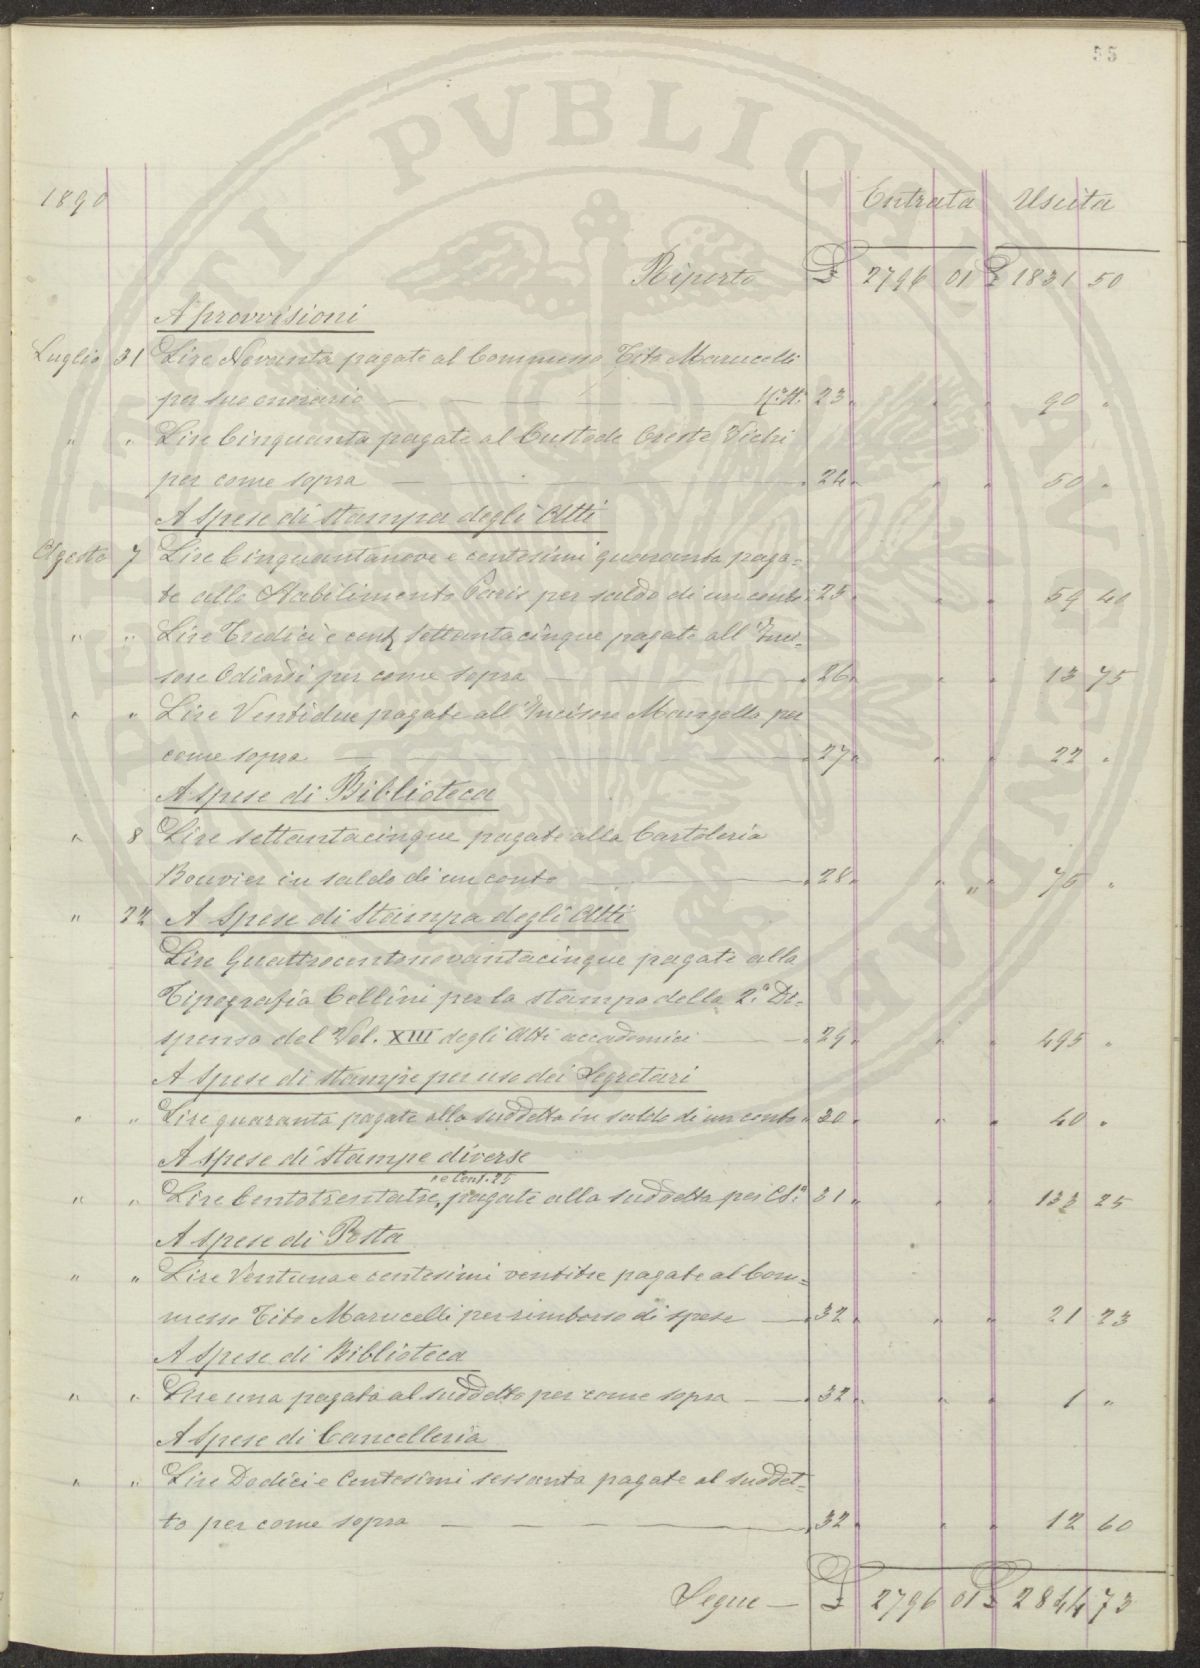 55
1890 Entrata Uscita
Riporto £ 2796 01 £ 1831 50
A provvisioni
Luglio 31 Lire Novanta pagate al Commesso Tito Marucelli
per suo onorario — 23 " " " 90 "
" " Lire Cinquanta pagate al Custode Oreste Vichi
per come sopra — " 24 " " " 50 "
A spese di stampa degli Atti
Agosto 7 Lire Cinquantanove e centesimi quaranta paga=
te allo Stabilimento Paris per saldo di un conto " 25 " " " 59 40
" " Lire Tredici e cent settantacinque pagate all'Inci=
sore Odiardi per come sopra — " 26 " " " 13 75
" " Lire Ventidue pagate all'Incisore Mangella per
come sopra — " 27 " " " 22 "
A spese di Biblioteca
" 8 Lire settantacinque pagate alla Cartoleria
Bouvier in saldo di un conto — " 28 " " " 75 "
" 22 A spese di Stampa degli Atti
Lire Quattrocentonovantacinque pagate alla
Tipografia Cellini per la stampa della 2.a Di=
spensa del Vol. XIII degli Atti accademici — " 29 " " " 495 "
A spese di stampe per uso dei Segretari
" " Lire quaranta pagate alla suddetta in saldo di un conto " 30 " " " 40 "
A spese di stampe diverse
e Cent. 25
" " Lire Centotrentatre, pagate alla suddetta per Cs.a 31 " " " 133 25
A spese di Posta
" " Lire Ventuna e centesimi ventitre pagate al Com=
messo Tito Marucelli per rimborso di spese — " 32 " " " 21 23
A spese di Biblioteca
" " Lire una pagata al suddetto per come sopra — " 32 " " " 1 "
A spese di Cancelleria
" " Lire Dodici e Centesimi sessanta pagate al suddet=
to per come sopra — " 32 " " " 12 60
Segue — £ 2796 01 £ 2844 73